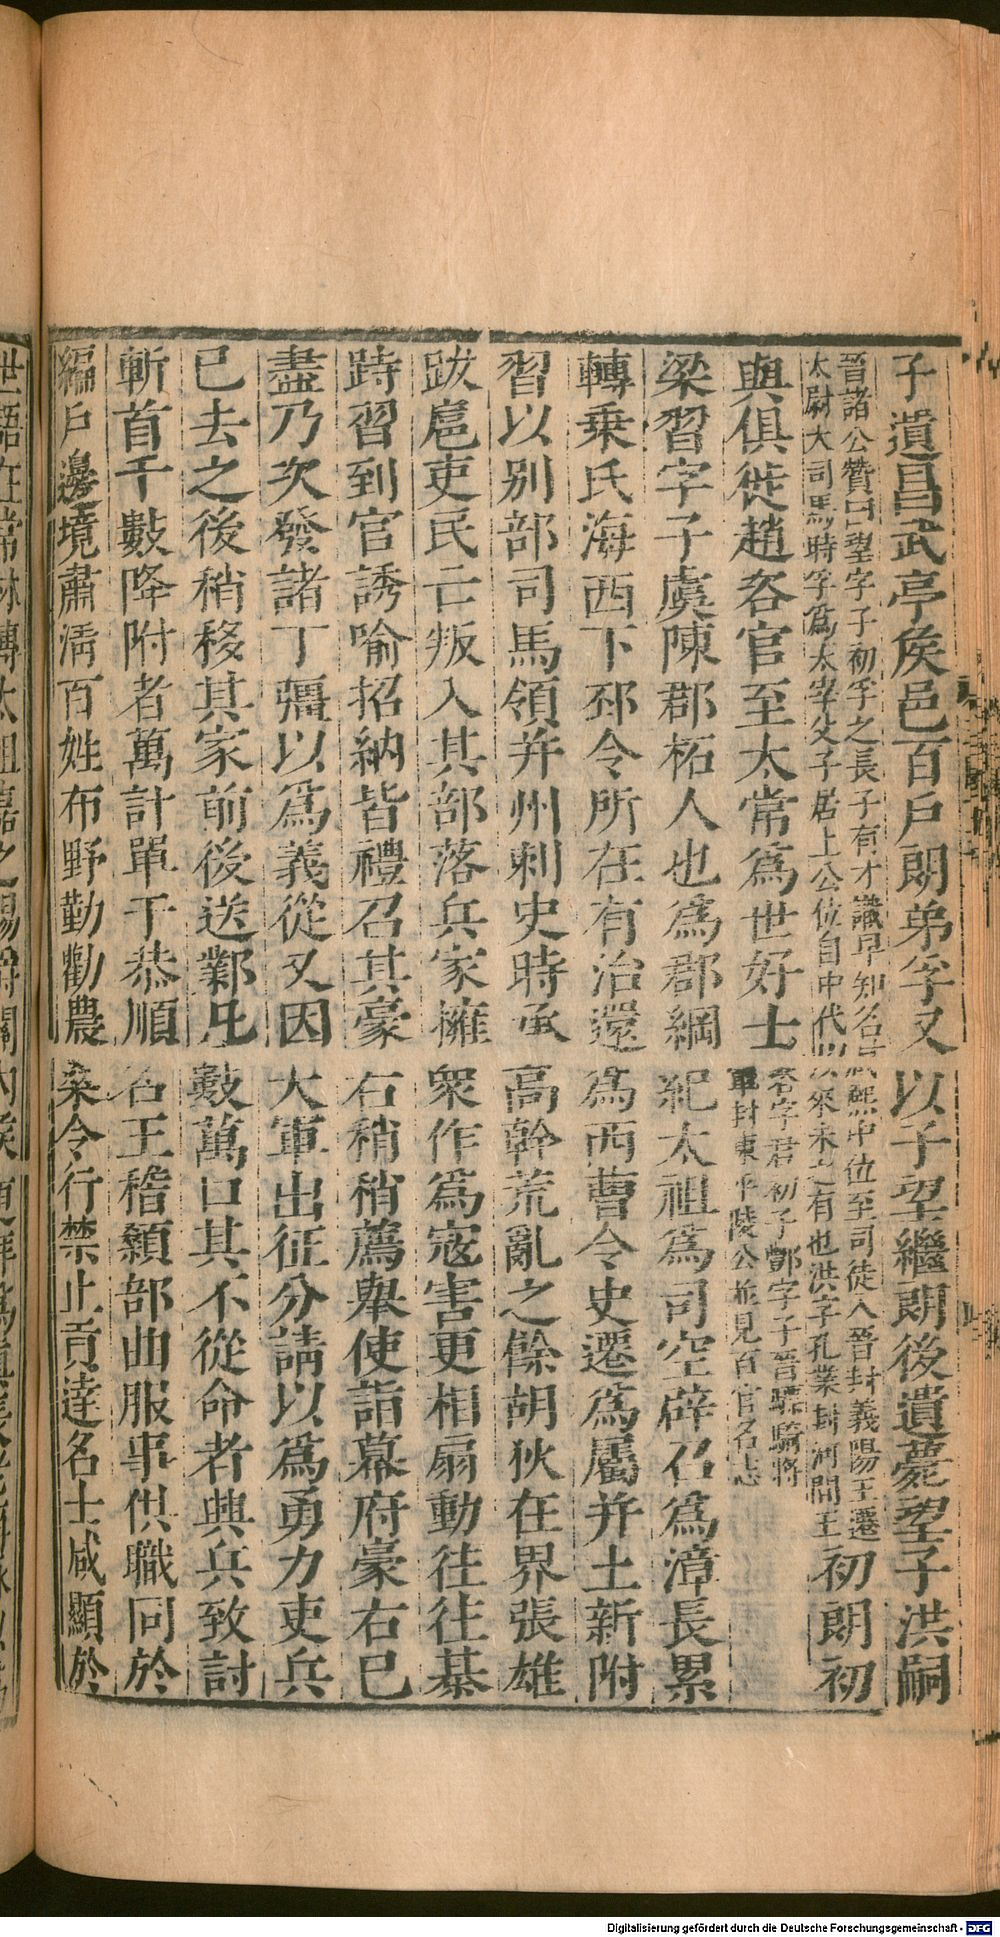 子遺昌武亭侯邑百戶朗弟孚又以子望繼朗後遺薨望子洪嗣
晉諸公贊曰望字子初孚之長子有才識早知名咸熙中位至司徒入晉封義陽王遷
太尉大司馬時孚爲太宰父子居上公位自中代以來未之有也洪字孔業封河間王
初朗初
與俱徙趙咨官至太常爲世好士
咨字君初子酆字子晉驃騎將
軍封東平陵公並見百官名志
梁習字子虞陳郡柘人也爲郡綱紀太祖爲司空辟召爲漳長累
轉乗氏海西下邳令所在有治還爲西曹令史遷爲屬并土新附
習以别部司馬領并州刺史時承高幹荒亂之餘胡狄在界張雄
跋扈吏民亡叛入其部落兵家擁衆作爲寇害更相扇動往往棊
跱習到官誘喻招納皆禮召其豪右稍稍薦舉使詣幕府豪右已
盡乃次發諸丁彊以爲義從又因大軍出征分請以爲勇力吏兵
已去之後稍移其家前後送鄴凡數萬口其不從命者興兵致討
斬首千數降附者萬計單于恭順名王稽顙部曲服事供職同於
編戶邊境肅淸百姓布野勤勸農桑令行禁止貢達名士咸顯於
Digitalisierung gefördert durch die Deutsche Forschungsgemeinschaft - DFG